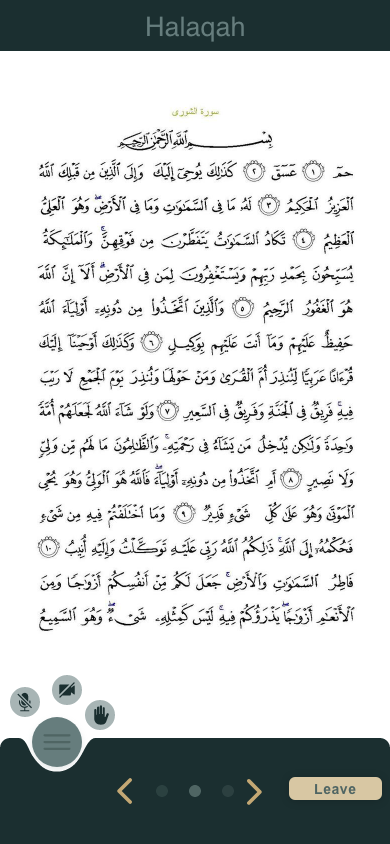 Halaqah
سورة الشورى
بِسْمِ اللَّهِ الرَّحْمَٰنِ الرَّحِيمِ
حمٓ ١ عٓسٓقٓ ٢ كَذَٰلِكَ يُوحِىٓ إِلَيْكَ وَإِلَى ٱلَّذِينَ مِن قَبْلِكَ ٱللَّهُ
ٱلْعَزِيزُ ٱلْحَكِيمُ ٣ لَهُۥ مَا فِى ٱلسَّمَٰوَٰتِ وَمَا فِى ٱلْأَرْضِ ۖ وَهُوَ ٱلْعَلِىُّ
ٱلْعَظِيمُ ٤ تَكَادُ ٱلسَّمَٰوَٰتُ يَتَفَطَّرْنَ مِن فَوْقِهِنَّ ۚ وَٱلْمَلَٰٓئِكَةُ
يُسَبِّحُونَ بِحَمْدِ رَبِّهِمْ وَيَسْتَغْفِرُونَ لِمَن فِى ٱلْأَرْضِ ۗ أَلَآ إِنَّ ٱللَّهَ
هُوَ ٱلْغَفُورُ ٱلرَّحِيمُ ٥ وَٱلَّذِينَ ٱتَّخَذُوا۟ مِن دُونِهِۦٓ أَوْلِيَآءَ ٱللَّهُ
حَفِيظٌ عَلَيْهِمْ وَمَآ أَنتَ عَلَيْهِم بِوَكِيلٍ ٦ وَكَذَٰلِكَ أَوْحَيْنَآ إِلَيْكَ
قُرْءَانًا عَرَبِيًّا لِّتُنذِرَ أُمَّ ٱلْقُرَىٰ وَمَنْ حَوْلَهَا وَتُنذِرَ يَوْمَ ٱلْجَمْعِ لَا رَيْبَ
فِيهِ ۚ فَرِيقٌ فِى ٱلْجَنَّةِ وَفَرِيقٌ فِى ٱلسَّعِيرِ ٧ وَلَوْ شَآءَ ٱللَّهُ لَجَعَلَهُمْ أُمَّةً
وَٰحِدَةً وَلَٰكِن يُدْخِلُ مَن يَشَآءُ فِى رَحْمَتِهِۦ ۚ وَٱلظَّٰلِمُونَ مَا لَهُم مِّن وَلِىٍّ
وَلَا نَصِيرٍ ٨ أَمِ ٱتَّخَذُوا۟ مِن دُونِهِۦٓ أَوْلِيَآءَ ۖ فَٱللَّهُ هُوَ ٱلْوَلِىُّ وَهُوَ يُحْىِ
ٱلْمَوْتَىٰ وَهُوَ عَلَىٰ كُلِّ شَىْءٍ قَدِيرٌ ٩ وَمَا ٱخْتَلَفْتُمْ فِيهِ مِن شَىْءٍ
فَحُكْمُهُۥٓ إِلَى ٱللَّهِ ۚ ذَٰلِكُمُ ٱللَّهُ رَبِّى عَلَيْهِ تَوَكَّلْتُ وَإِلَيْهِ أُنِيبُ ١٠
فَاطِرُ ٱلسَّمَٰوَٰتِ وَٱلْأَرْضِ ۚ جَعَلَ لَكُم مِّنْ أَنفُسِكُمْ أَزْوَٰجًا وَمِنَ
ٱلْأَنْعَٰمِ أَزْوَٰجًا ۖ يَذْرَؤُكُمْ فِيهِ ۚ لَيْسَ كَمِثْلِهِۦ شَىْءٌ ۖ وَهُوَ ٱلسَّمِيعُ
Leave